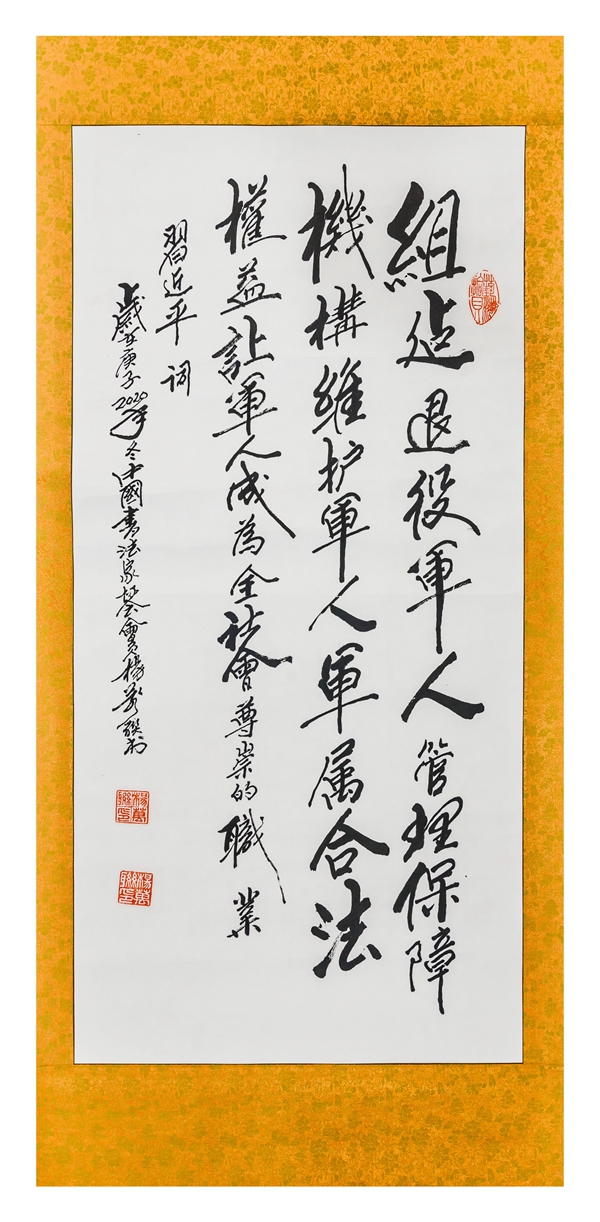 組建退役軍人管理保障
機構維护軍人軍属合法
權益让軍人成為全社會尊崇的職業
習近平 词
歲在庚子2020年冬中國書法家协會會員楊萬聯书
楊萬聯印
楊萬聯印